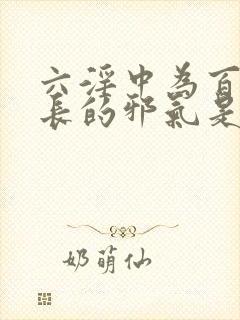 六淫中為百
長的邪氣是
奶萌仙